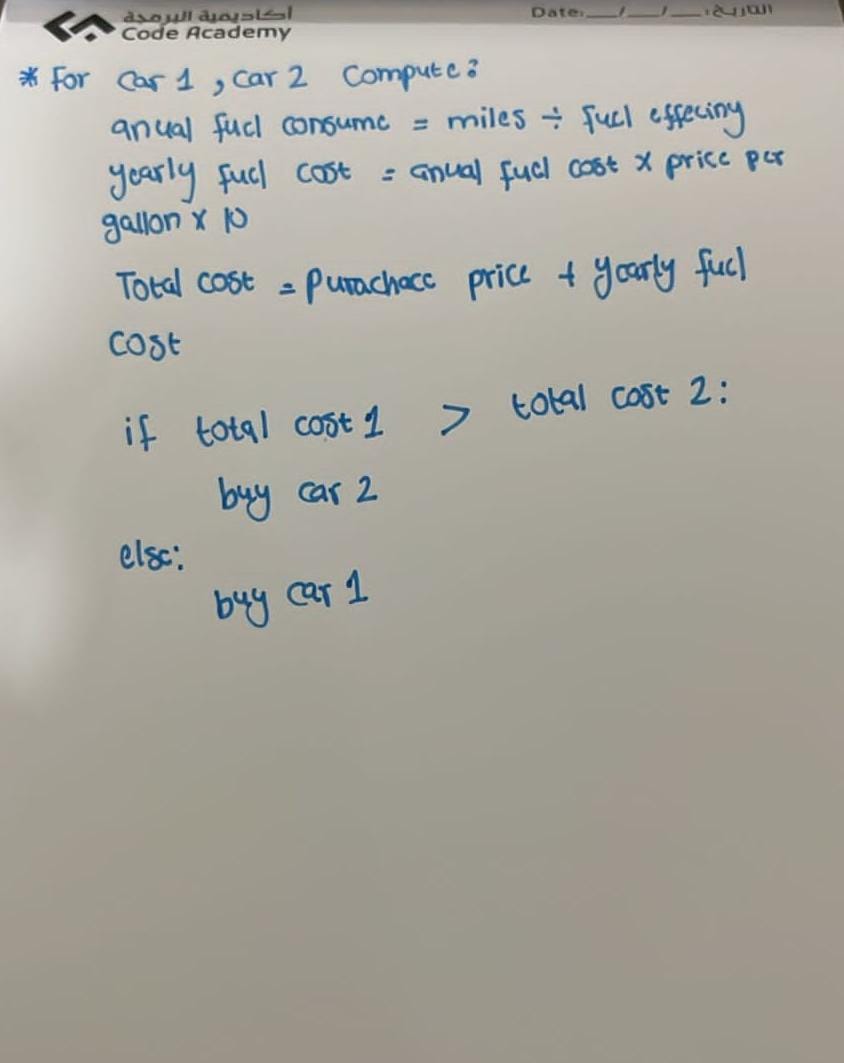 أكاديمية البرمجة
Code Academy
Date: __/__/__ :التاريخ
* For car 1 , car 2 Compute:
anual fuel consume = miles ÷ fuel effeciny
yearly fuel cost = anual fuel cost x price per
gallon x 10
Total cost = purachace price + yearly fuel
cost
if total cost 1 > total cost 2:
buy car 2
else:
buy car 1